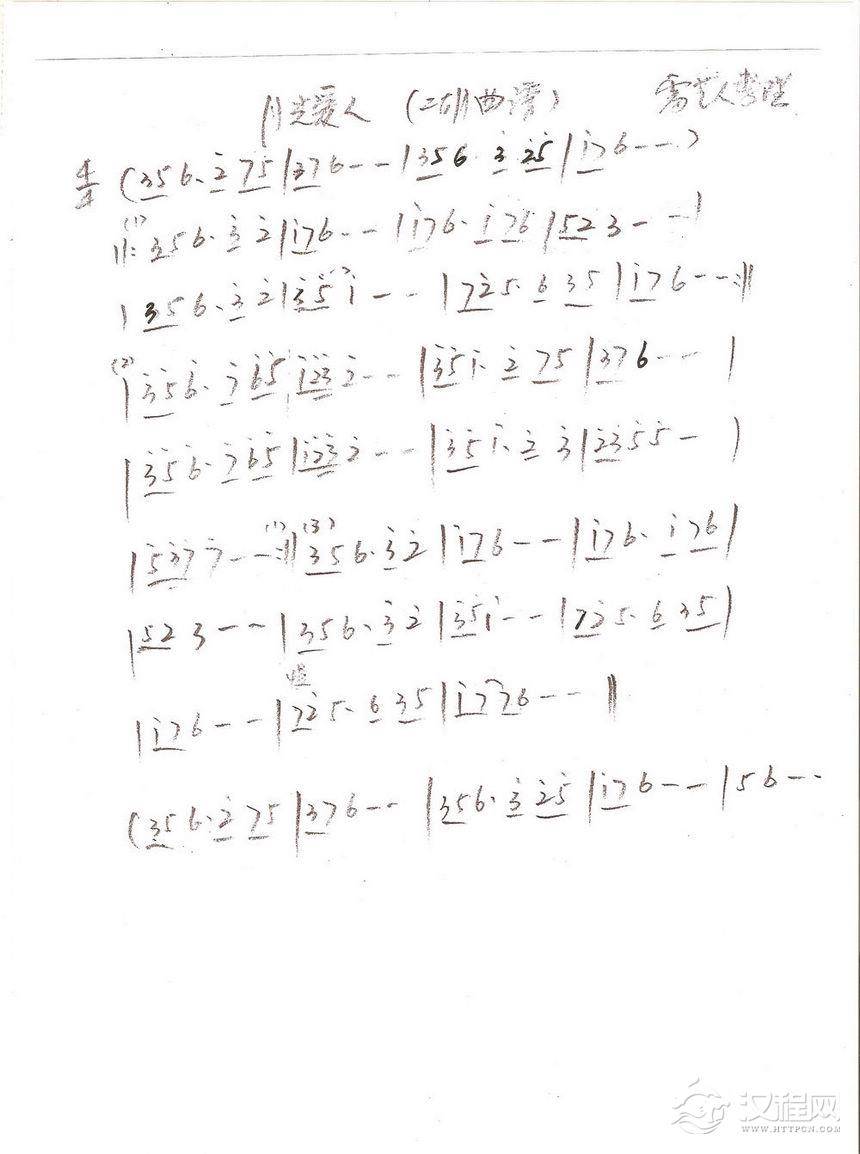 月光爱人 (二胡曲谱)
4/4 (356·i̇ 275|376--|356·3 25|i76--)
(1) ‖:356·3 2|i76--|i76·i76|523--|
|356·3 2|35i--|725·6 35|i76--:‖
(2) |356·765|1232--|35i·2 75|376--|
|356·765|1232--|35i·2 3|2355-|
|5377--:‖(3) 356·3 2|i76--|i76·i76|
|523--|356·3 2|35i--|725·6 35|
|i76--|725·6 35|i776--‖
(356·2 75|376--|356·3 25|i76--|56--
汉程网
WWW.HTTPCN.COM